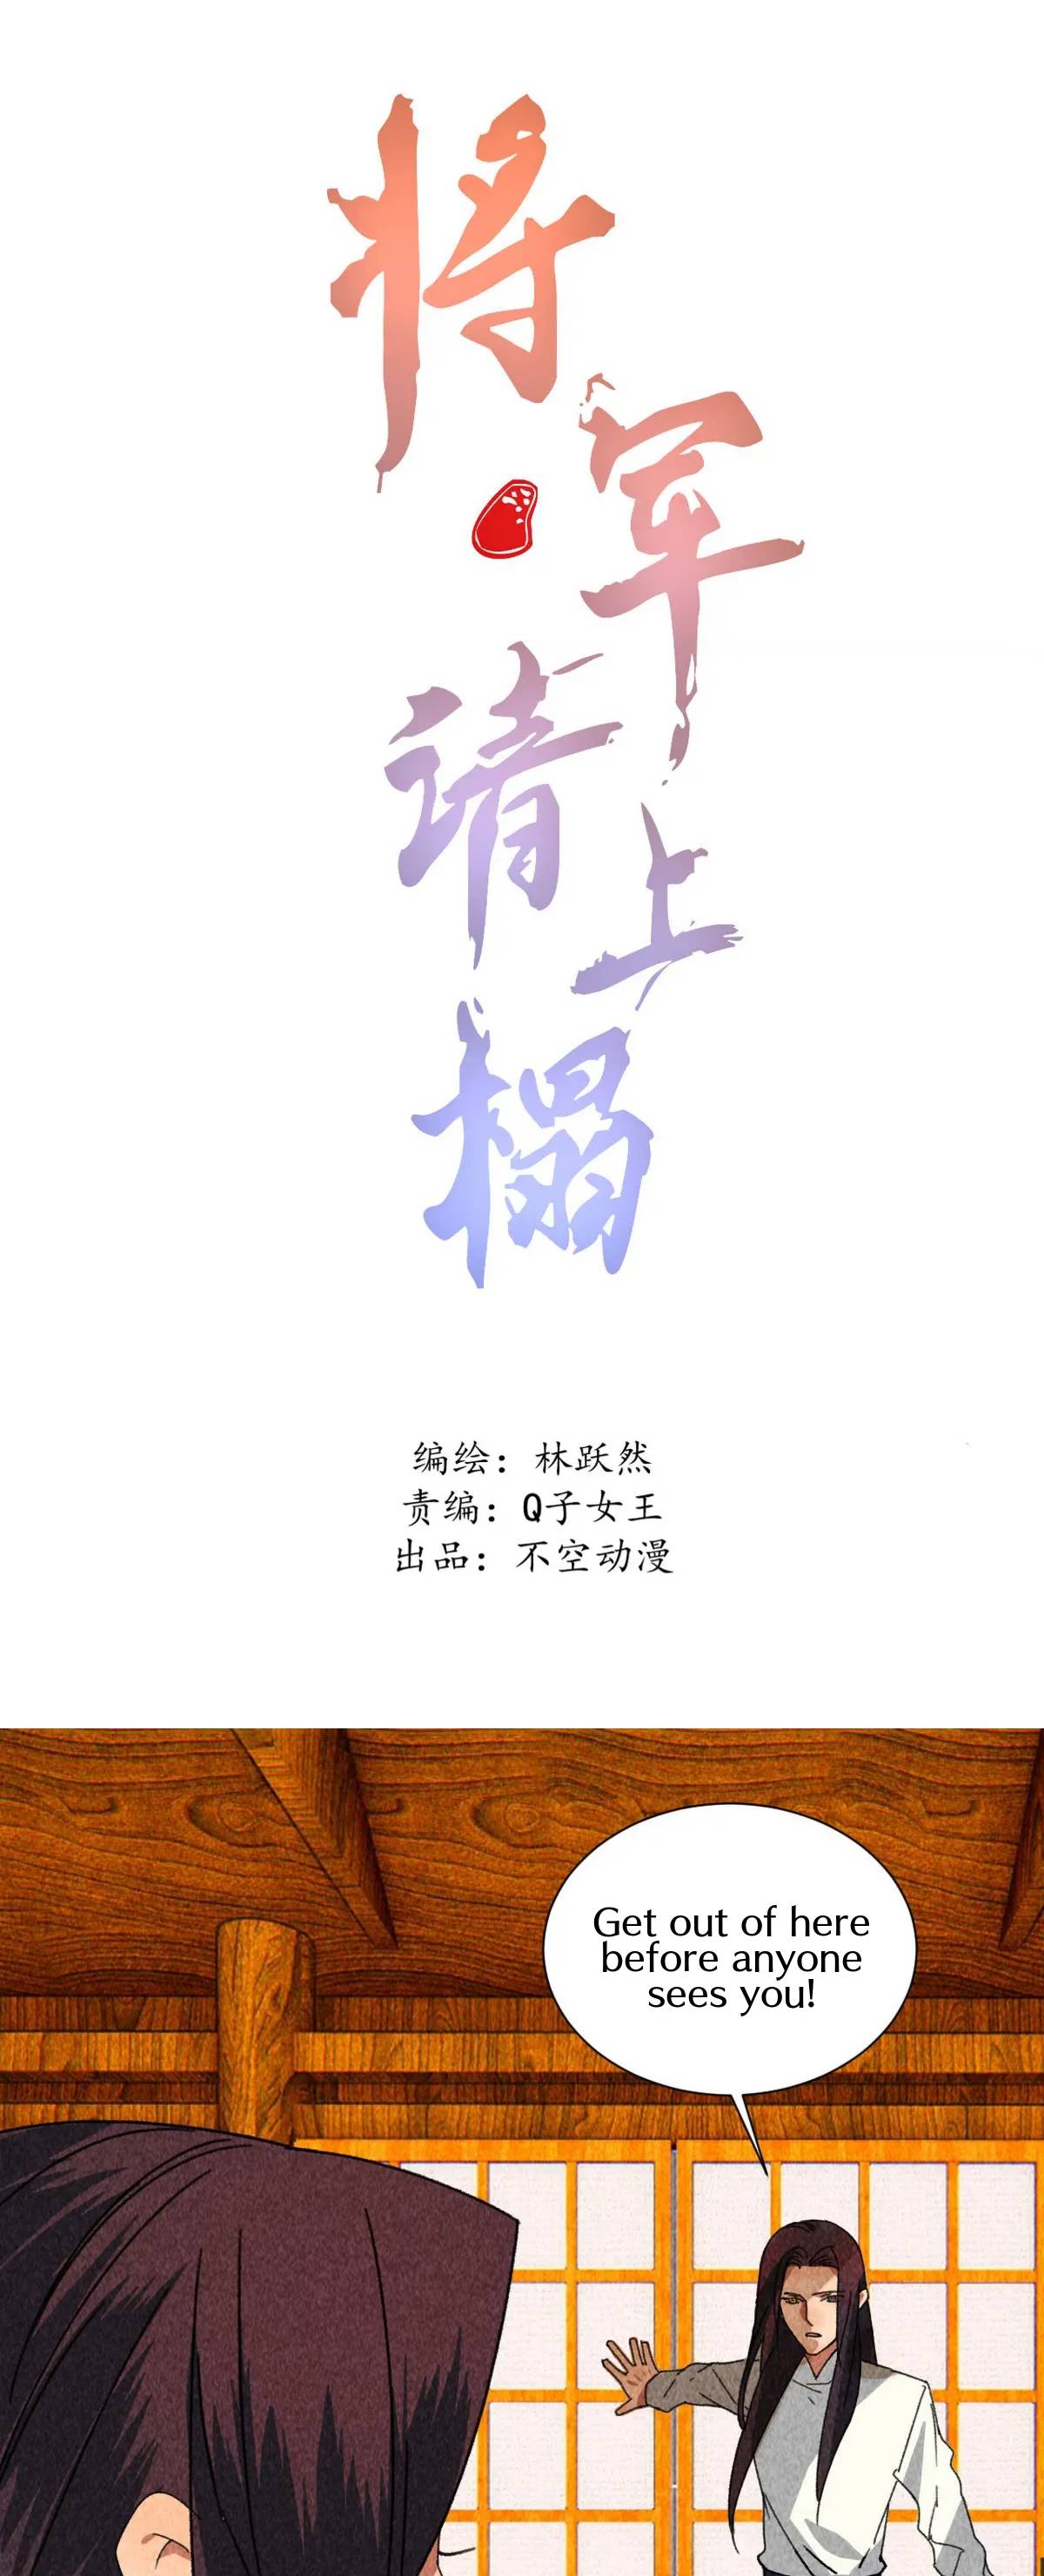 将军
请上
榻
编绘：林跃然
责编：Q子女王
出品：不空动漫
Get out of here
before anyone
sees you!